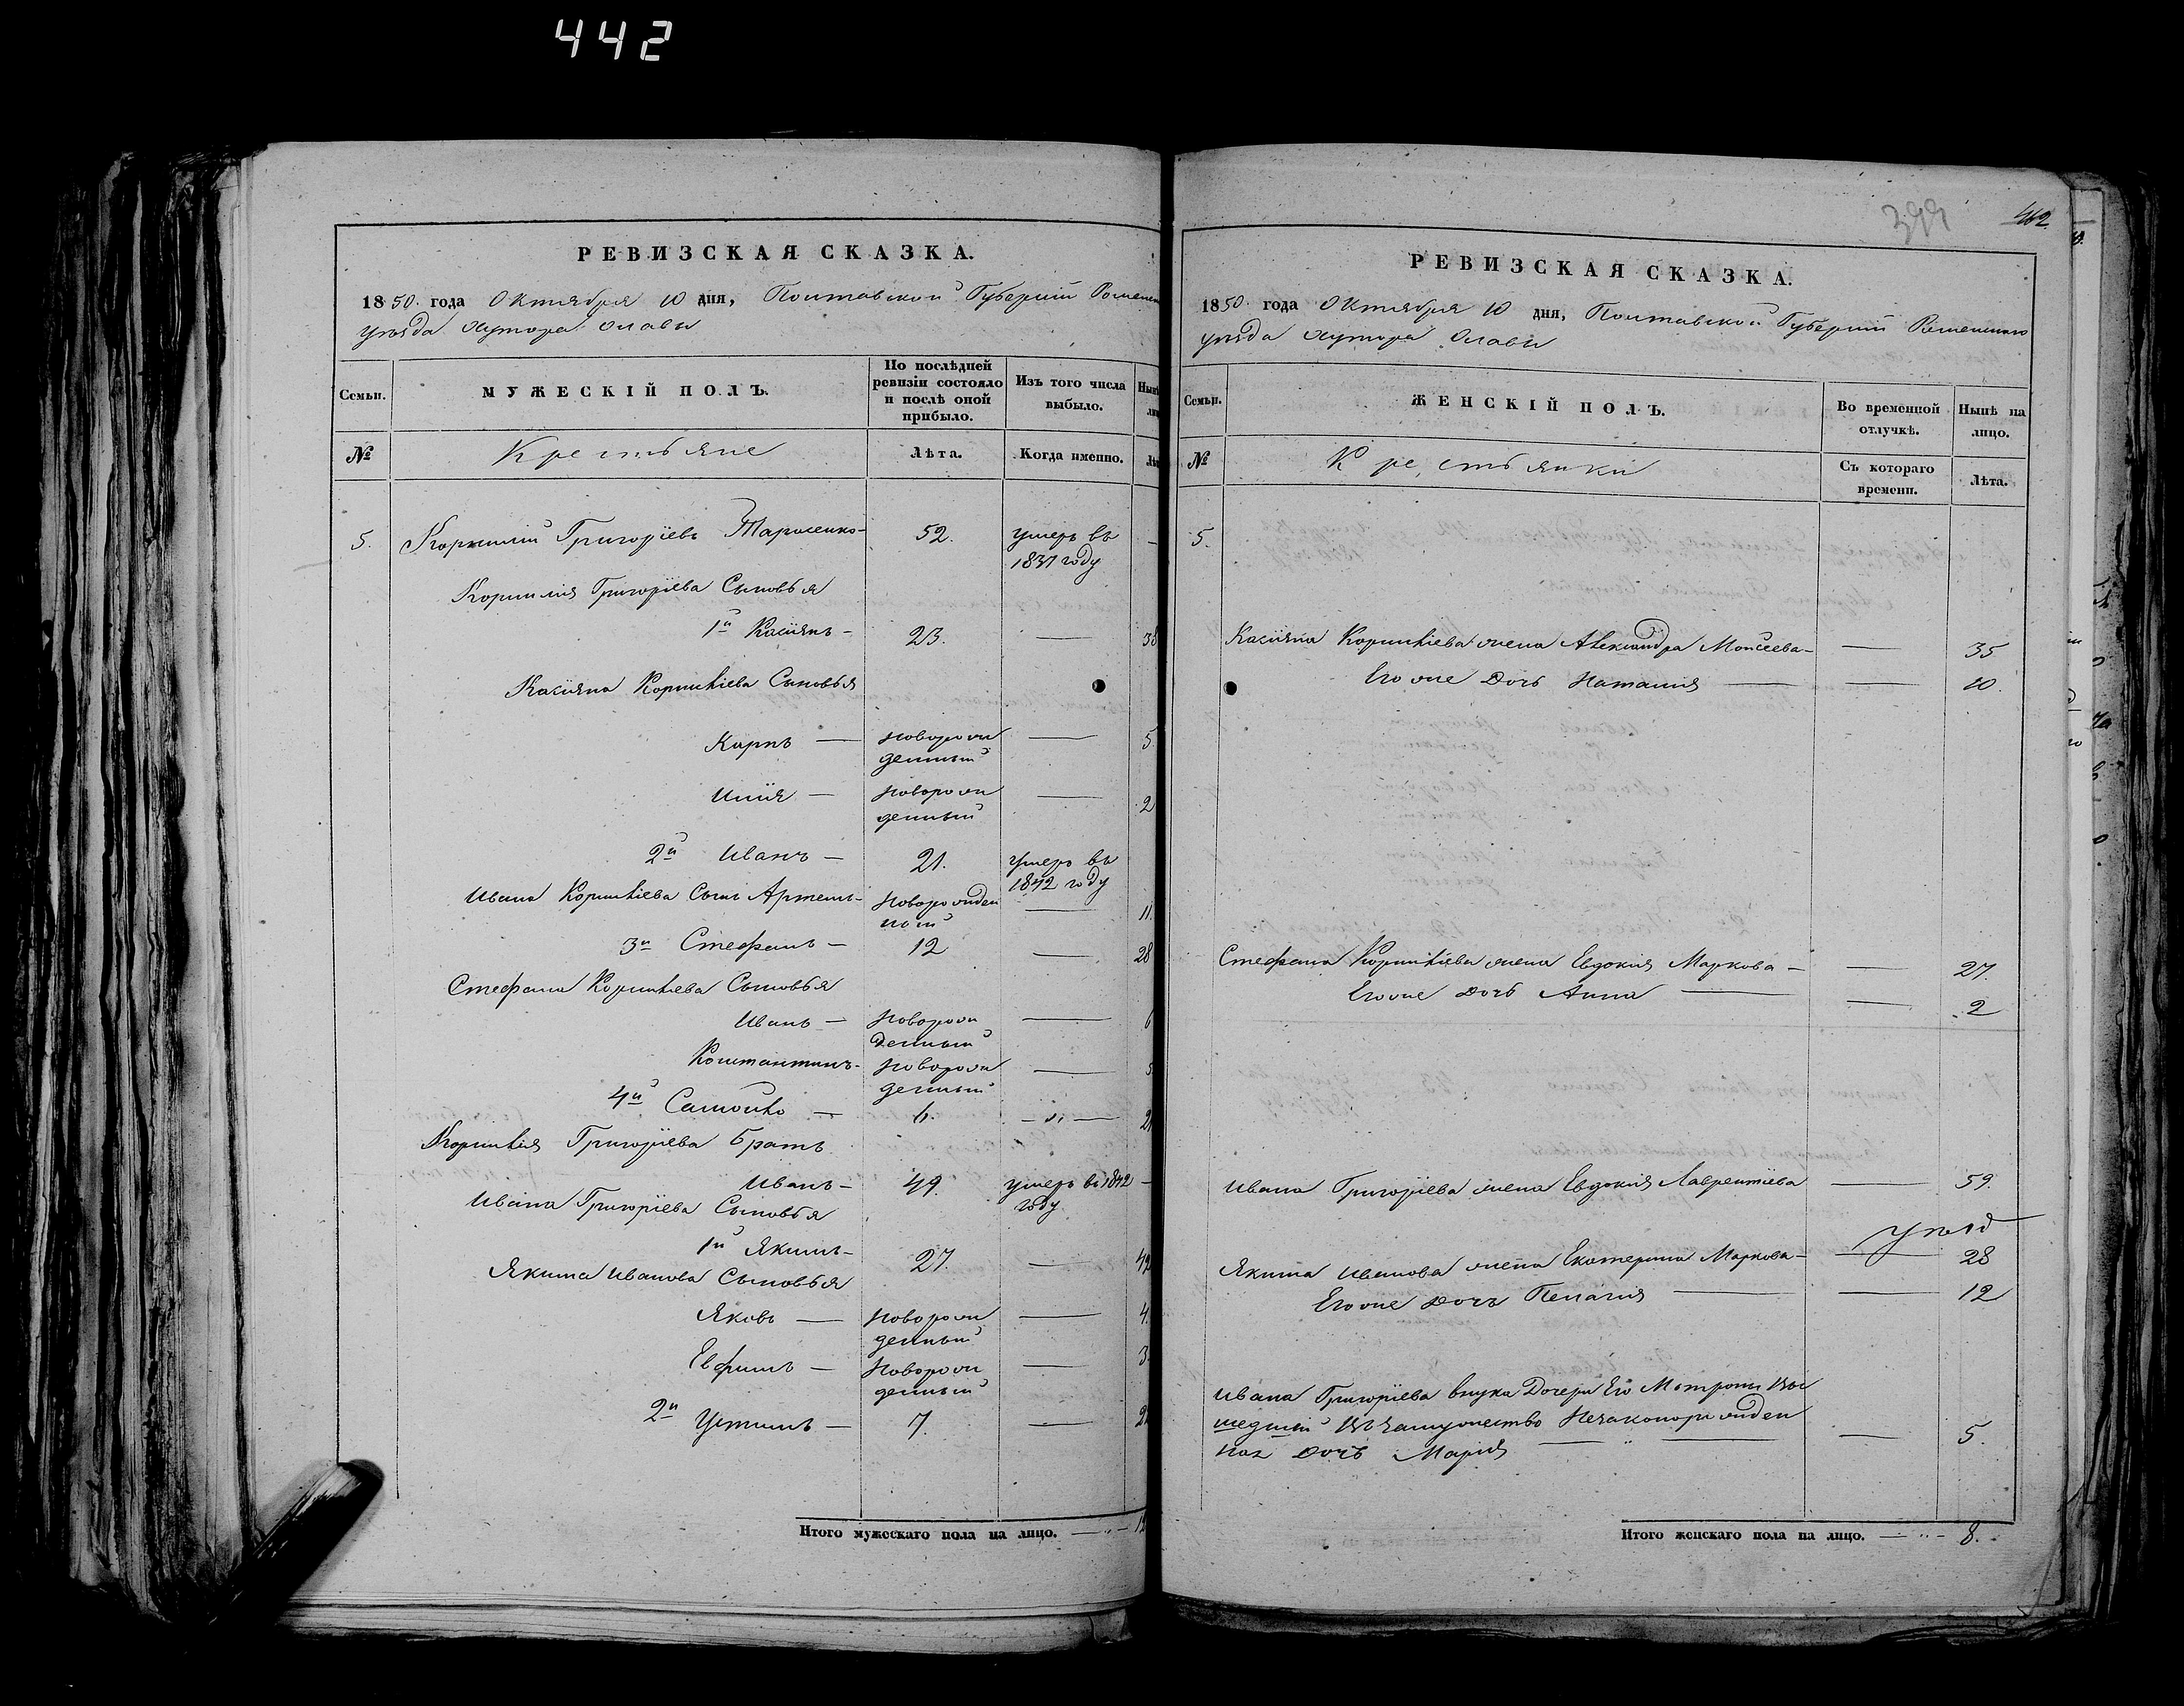 442
РЕВИЗСКАЯ СКАЗКА.
1850. года Октября 10 дня, Полтавской Губерніи Роменск
уѣзда хутора
Семьи.
МУЖЕСКІЙ ПОЛЪ.
По послѣдней ревизіи состояло и послѣ оной прибыло.
Изъ того числа выбыло.
№
Крестьяне
Лѣта.
Когда именно.
5. Корнилій Григоріевъ Тарасенко- 52. умеръ въ
1837 году
Корнилія Григоріева Сыновья
1й Касіянъ — 23. — 38
Касіяна Корниліева Сыновья
Карпъ — новорож — 5
денный
Илія — новорож — 2
денный
2й Иванъ — 21. умеръ въ
1842 году
Ивана Корниліева Сынъ Артемъ- новорожден — 11.
ный
3й Стефанъ — 12 — 28
Стефана Корниліева Сыновья
Иванъ — новорож — 6
денный
Константинъ- новорож — 5
денный
4й Самойло — 6. — 21
Корнилія Григоріева Братъ
Иванъ — 49. умеръ въ 1842 —
году
Ивана Григоріева Сыновья
1й Якимъ — 27. — 42
Якима Иванова Сыновья
Яковъ — новорож — 4.
денный
Евфимъ — новорож — 3.
денный
2й Устимъ — 7. — 22
Итого мужескаго пола на лицо. — „ — 12
399
462
РЕВИЗСКАЯ СКАЗКА.
1850. года Октября 10 дня, Полтавской Губерніи Роменскаго
уѣзда хутора
Семьи.
ЖЕНСКІЙ ПОЛЪ.
Во временной отлучкѣ.
Нынѣ на лицо.
№
Крестьянки
Съ котораго времени.
Лѣта.
5.
Касіяна Корниліева жена Александра Моисеева — — 35
Его же Дочь Наталія — — 10.
Стефана Корниліева жена Евдокія Маркова — — 27.
Его же Дочь Анна — — 2
Ивана Григоріева жена Евдокія Лаврентіева — 59.
Якима Иванова жена Екатерина Маркова — — 28
Его же Дочь Пелагія — — 12
Ивана Григоріева внука Дочери Его Мотроны вы
шедшій въ замужество Незаконорожден
ная Дочь Марія — — 5.
Итого женскаго пола на лицо. — „ — 8.